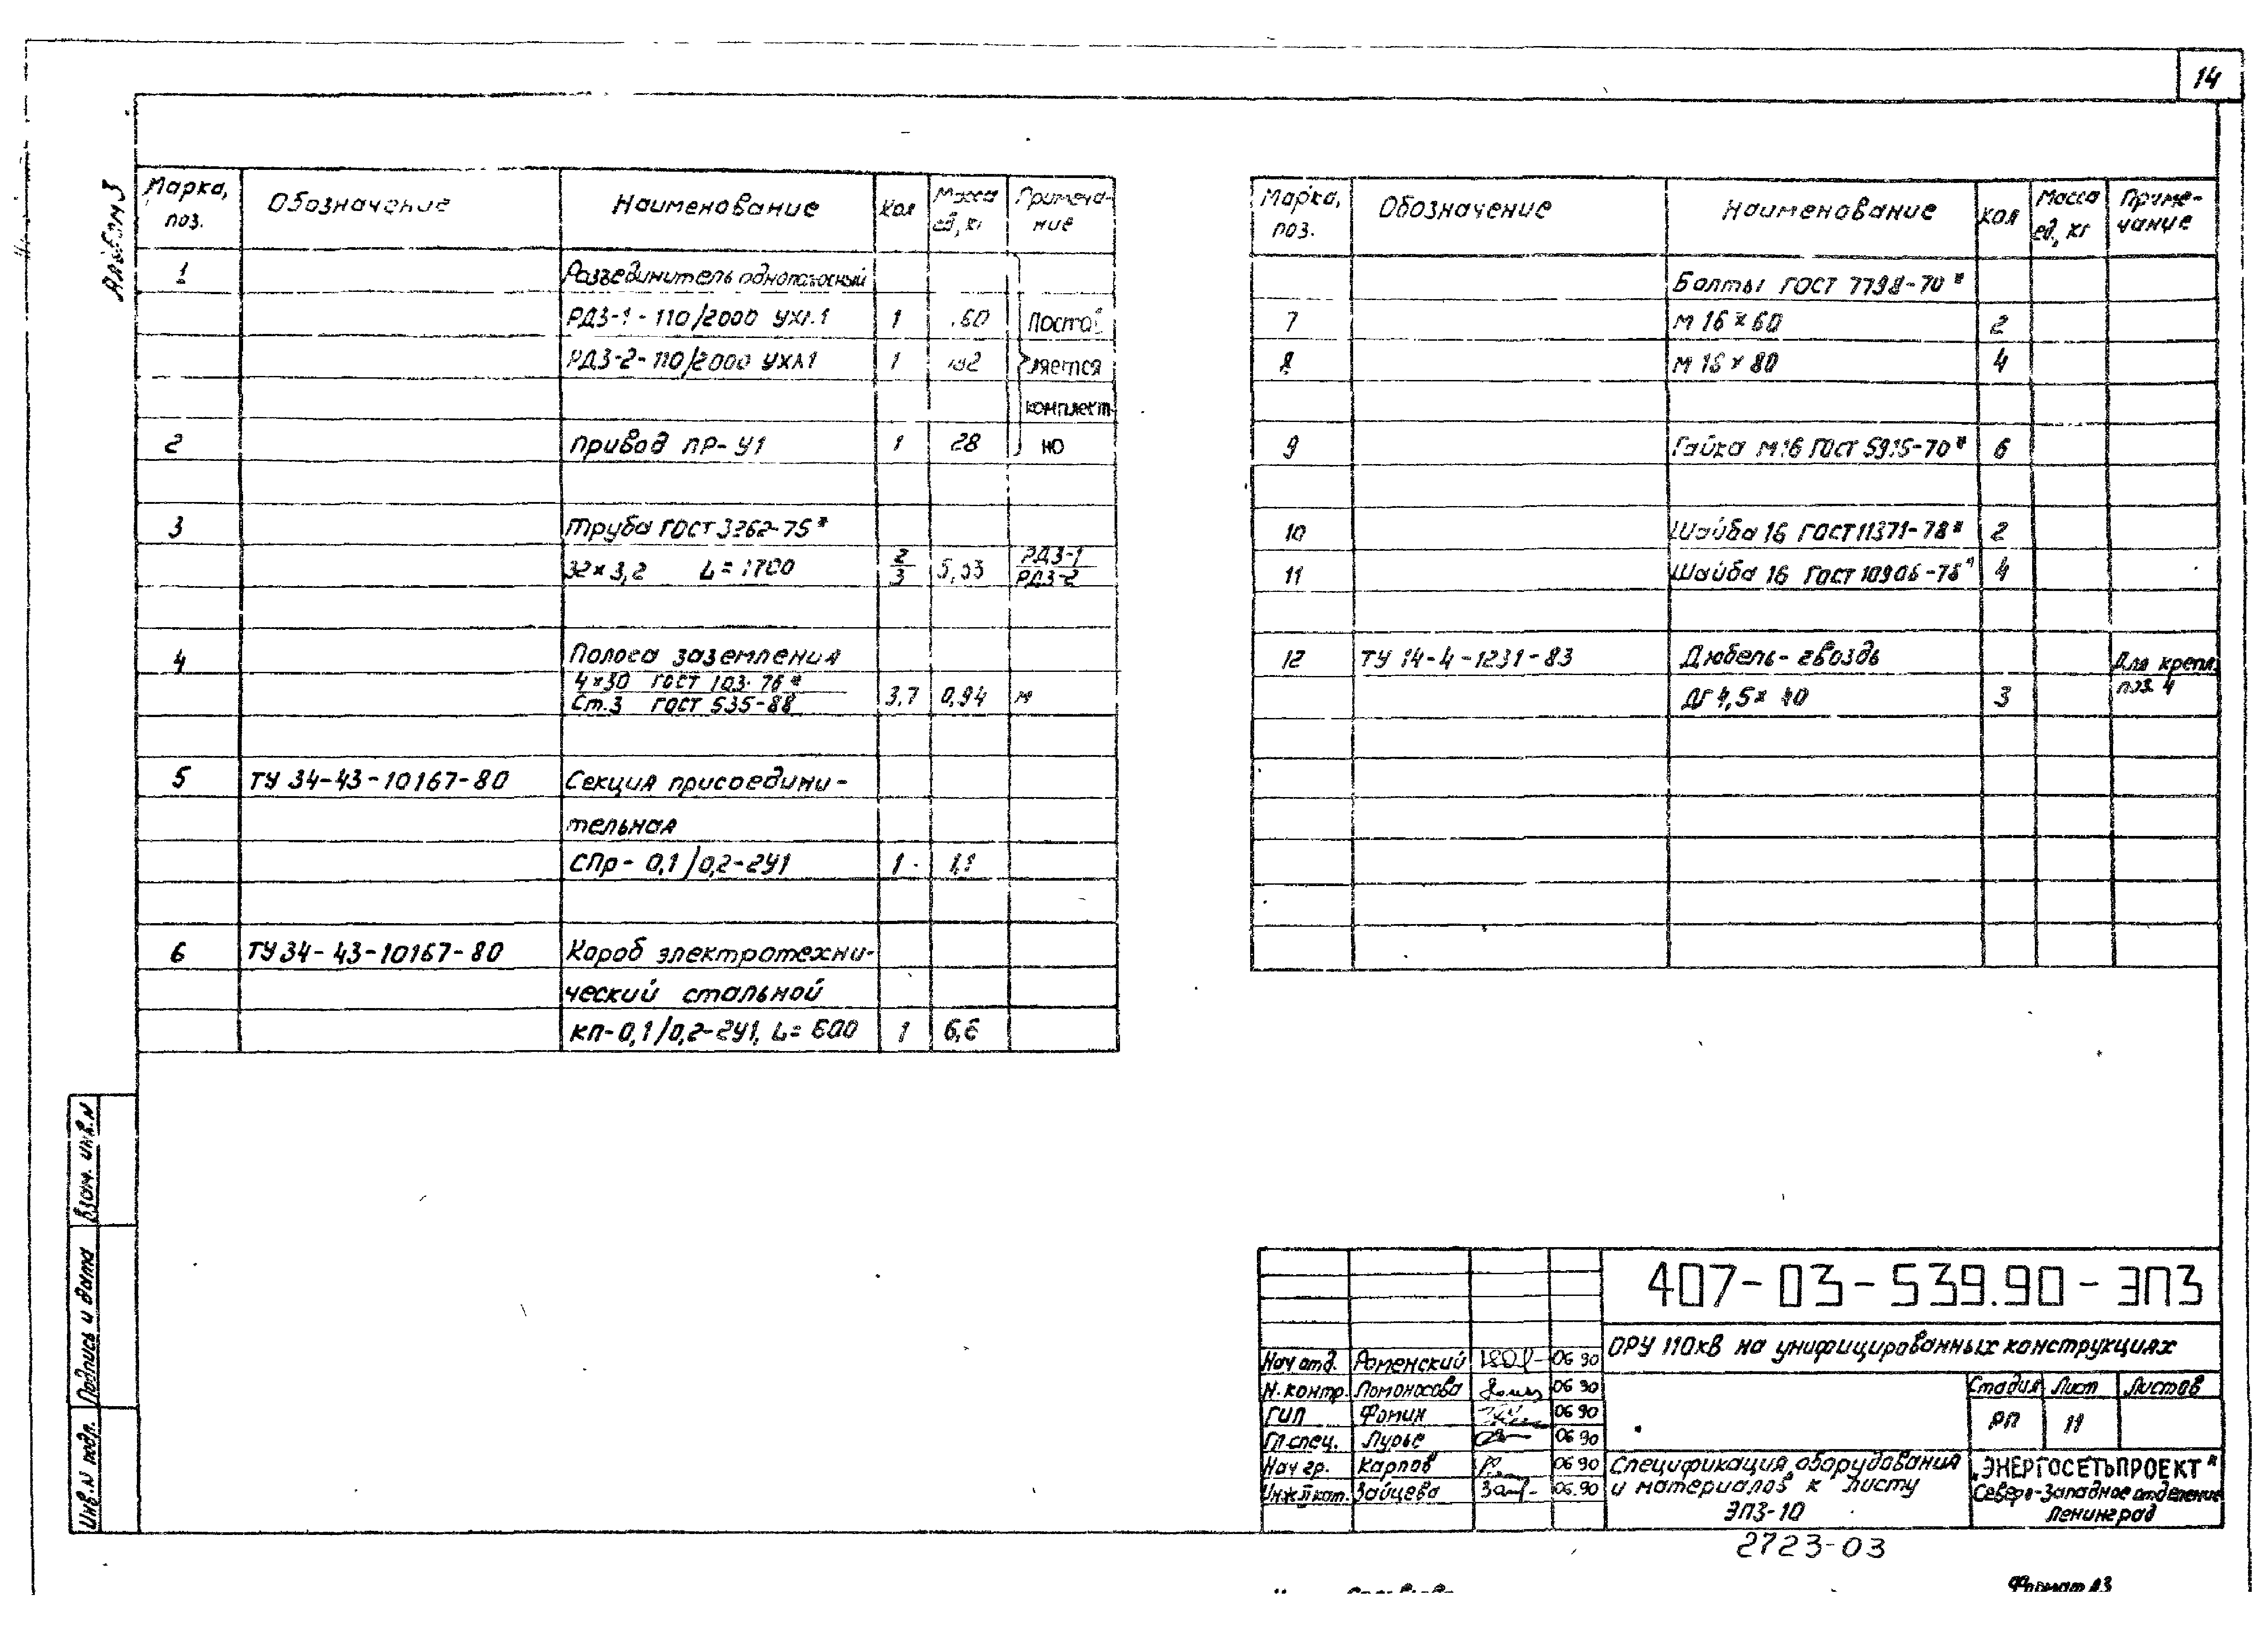 14
Альбом 3
Марка, поз. Обозначение Наименование Кол Масса ед, кг Примеча-ние
1 Разъединитель однополюсный
РДЗ-1-110/2000 УХЛ1 1
РДЗ-2-110/2000 УХЛ1 1
Постав
ляется
комплект
2 Привод ПР-У1 1 28 но
3 Труба ГОСТ 3262-75*
32×3,2 L=1700 2/3 РДЗ-1/РДЗ-2
4 Полоса заземления
4×30 ГОСТ 103-76*
Ст.3 ГОСТ 535-88 3,7 0,94 м
5 ТУ 34-43-10167-80 Секция присоедини-
тельная
СПр-0,1/0,2-2У1 1 1,1
6 ТУ 34-43-10167-80 Короб электротехни-
ческий стальной
КП-0,1/0,2-2У1, L=600 1 6,6
Марка, поз. Обозначение Наименование Кол Масса ед., кг Приме-чание
Болты ГОСТ 7798-70*
7 М16×60 2
8 М16×80 4
9 Гайка М16 ГОСТ 5915-70* 6
10 Шайба 16 ГОСТ 11371-78* 2
11 Шайба 16 ГОСТ 10906-78* 4
12 ТУ 14-4-1231-83 Дюбель-гвоздь Для крепл.
поз. 4
ДГ 4,5×40 3
Взам. инв.N
Подпись и дата
Инв.N подл.
407-03-539.90-ЭП3
ОРУ 110кВ на унифицированных конструкциях
Нач отд. Роменский 06 90
Н.контр. Ломоносова 06 90
ГИП Фомин 06 90
Гл.спец. Лурье 06 90
Нач гр. Карпов 06 90
Инж II кат. Зайцева 06.90
Стадия Лист Листов
РП 11
Спецификация оборудования
и материалов к листу
ЭП3-10
„ЭНЕРГОСЕТЬПРОЕКТ"
Северо-Западное отделение
Ленинград
2723-03
Формат А3